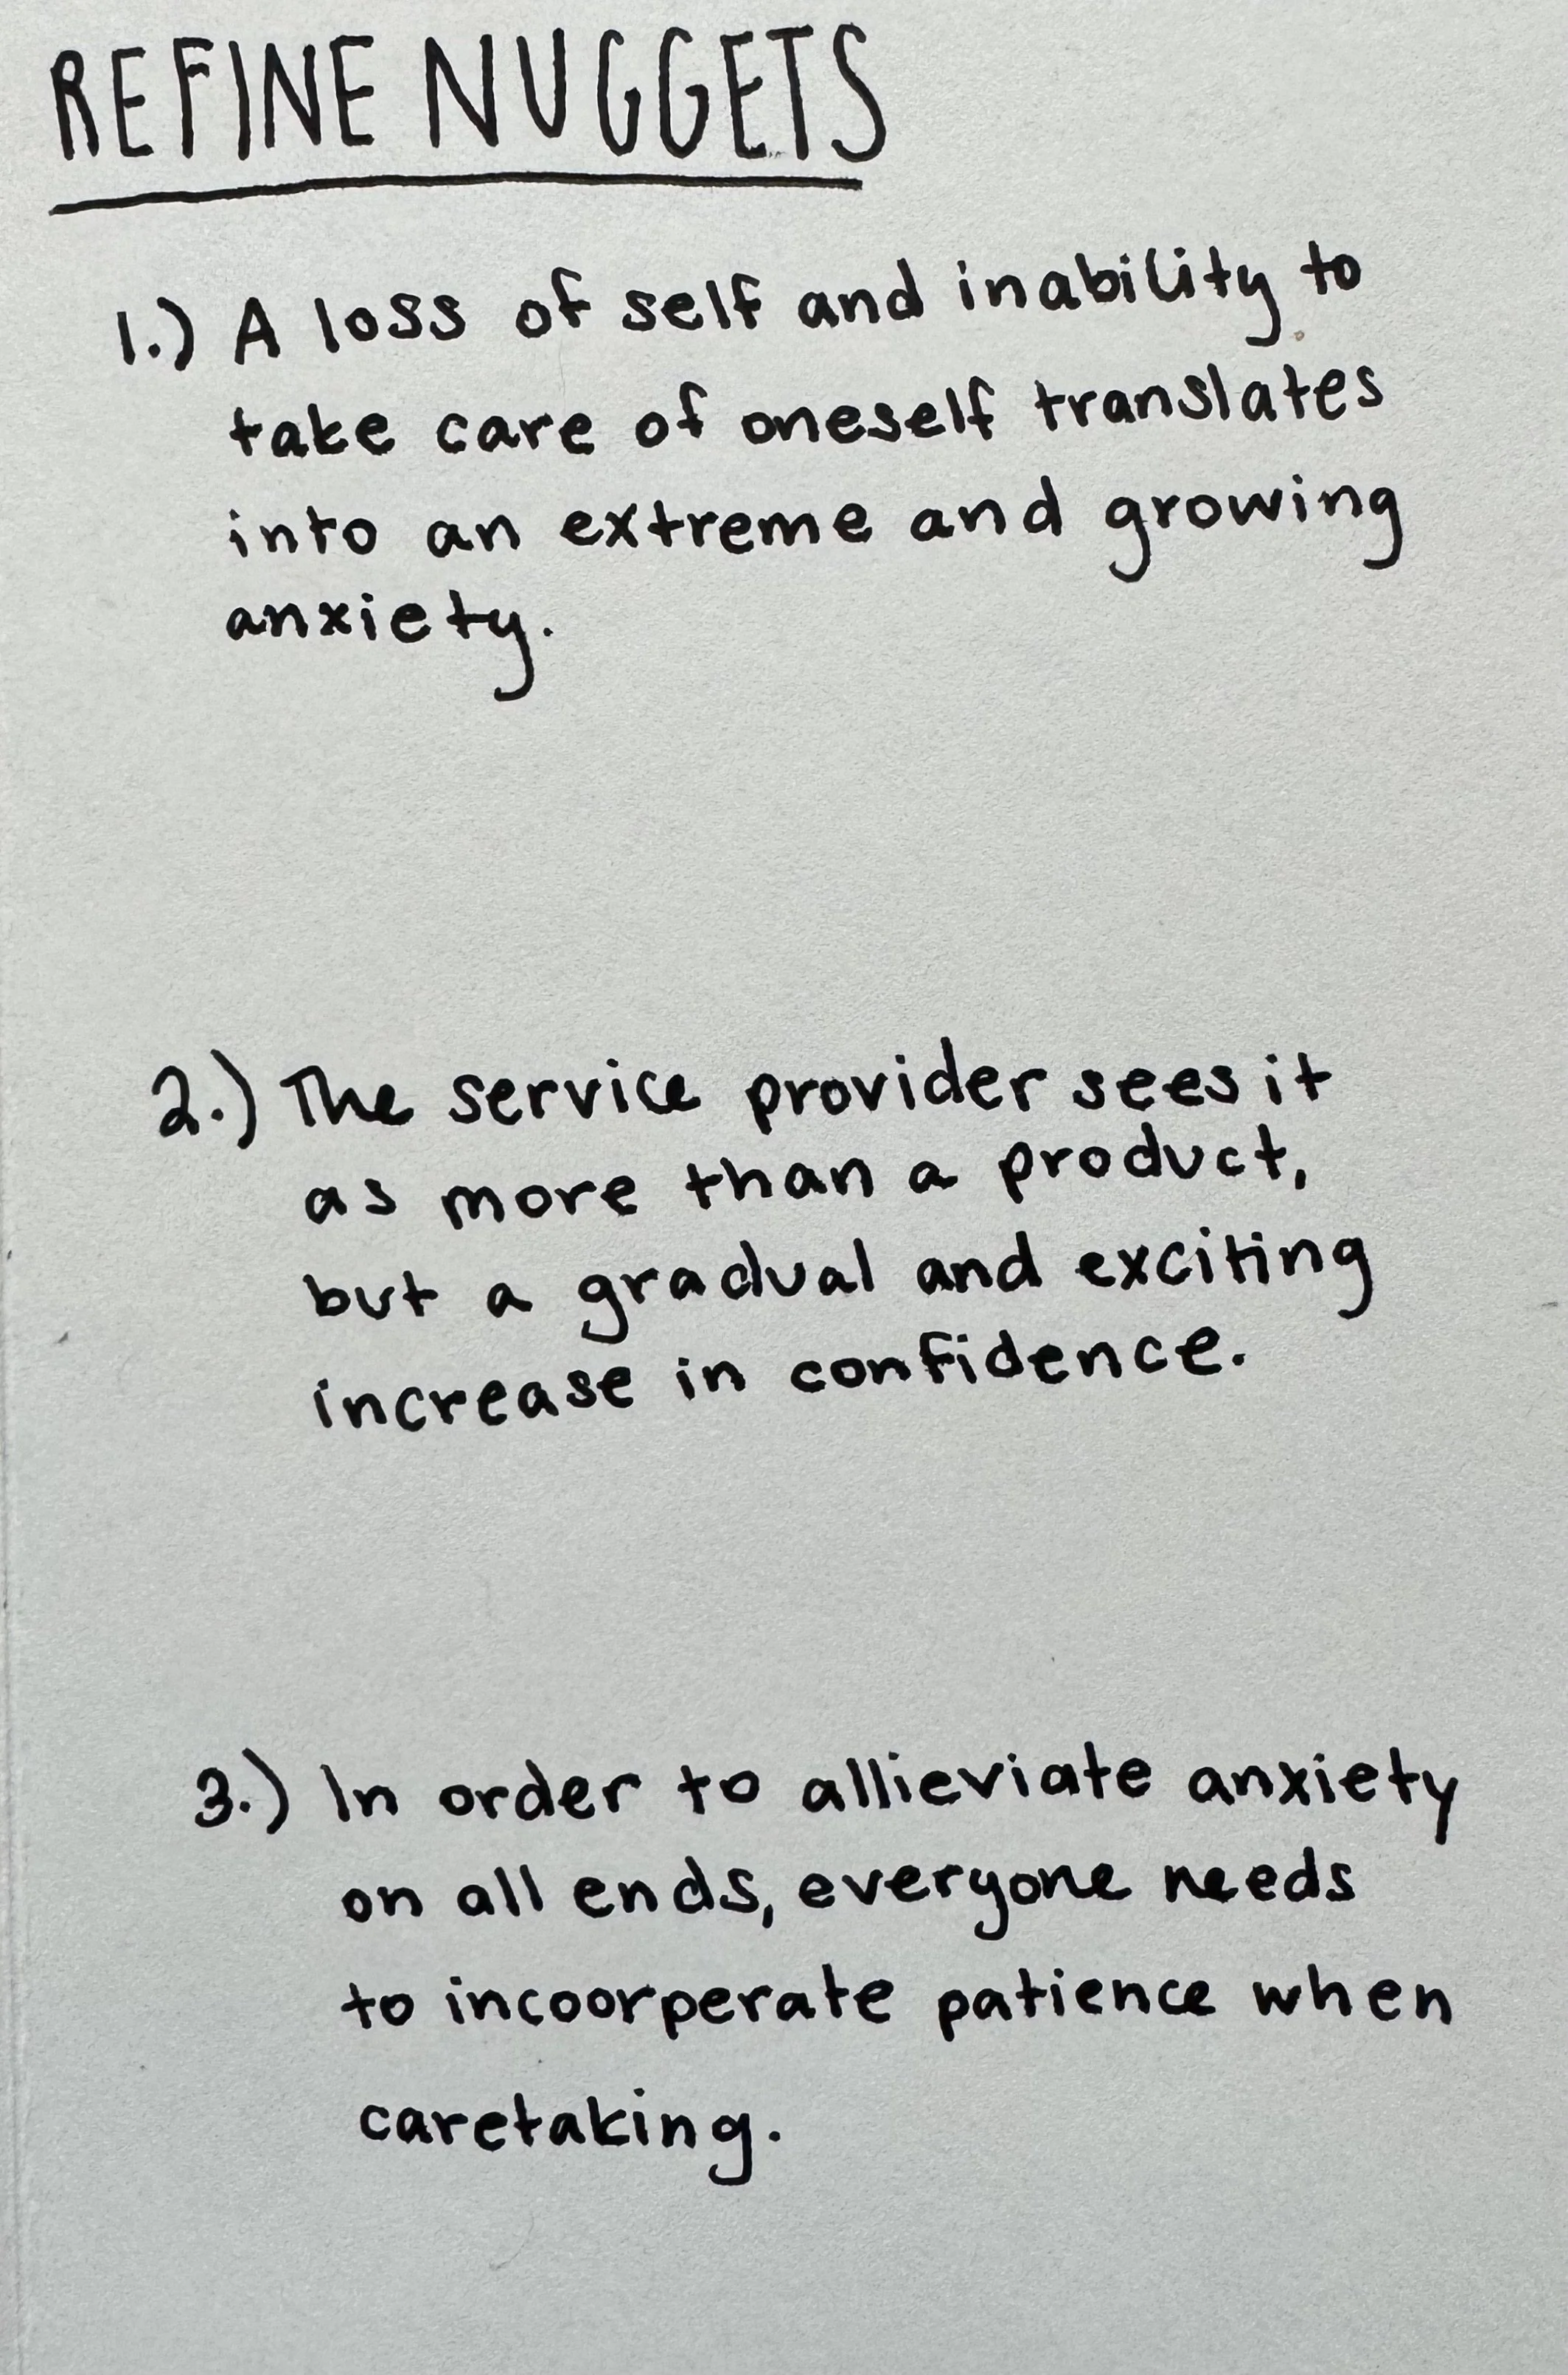 REFINE NUGGETS
1.) A loss of self and inability to
take care of oneself translates
into an extreme and growing
anxiety.
2.) The service provider sees it
as more than a product,
but a gradual and exciting
increase in confidence.
3.) In order to allieviate anxiety
on all ends, everyone needs
to incoorperate patience when
caretaking.